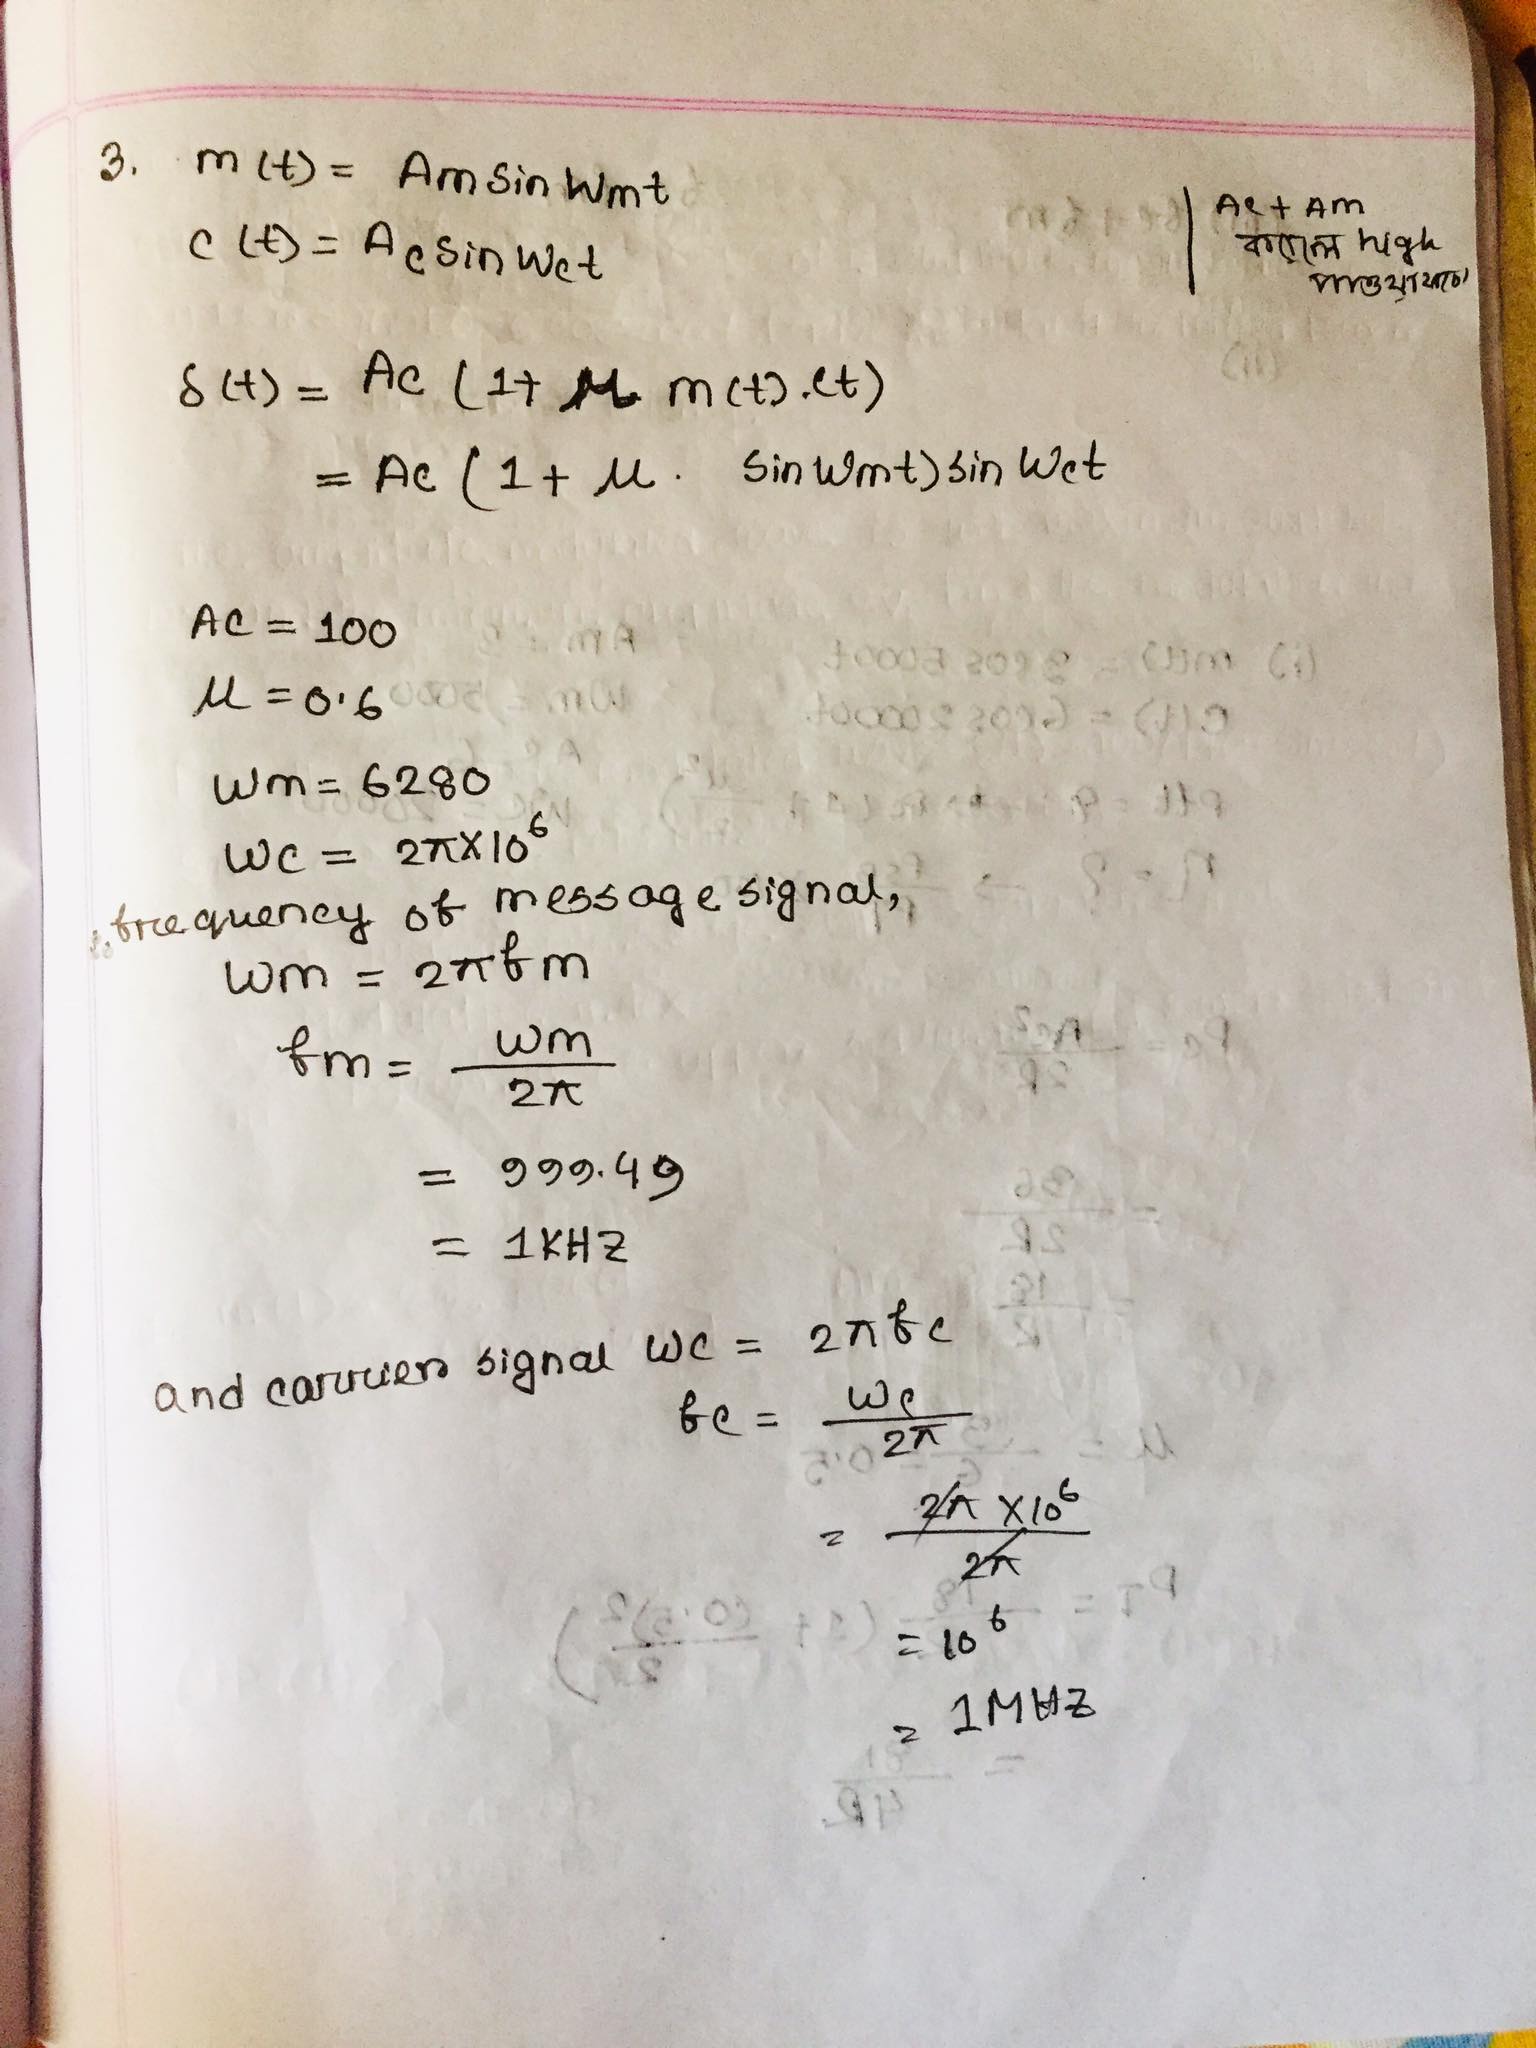 3. m(t) = Am Sin Wmt
c(t) = Ac Sin Wct
Ac + Am
করলে high
পাওয়া যাবে
s(t) = Ac (1+ μ m(t).ct)
= Ac (1 + μ. Sin Wmt) sin Wct
Ac = 100
μ = 0.6
Wm = 6280
Wc = 2π×10⁶
∴ frequency of message signal,
Wm = 2πfm
fm = Wm / 2π
= 999.49
= 1KHZ
and carrier signal Wc = 2πfc
fc = Wc / 2π
= 2π ×10⁶ / 2π
= 10⁶
= 1MHZ